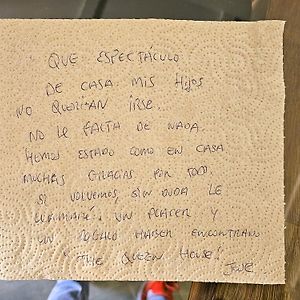 QUE ESPECTÁCULO
DE CASA. MIS HIJOS
NO QUERÍAN IRSE.
NO LE FALTA DE NADA.
HEMOS ESTADO COMO EN CASA
MUCHAS GRACIAS POR TODO
SI VOLVEMOS, SIN DUDA LE
LLAMARÉ. UN PLACER Y
UN ORGULLO HABER ENCONTRADO
"THE QUEEN HOUSE"
JOSE